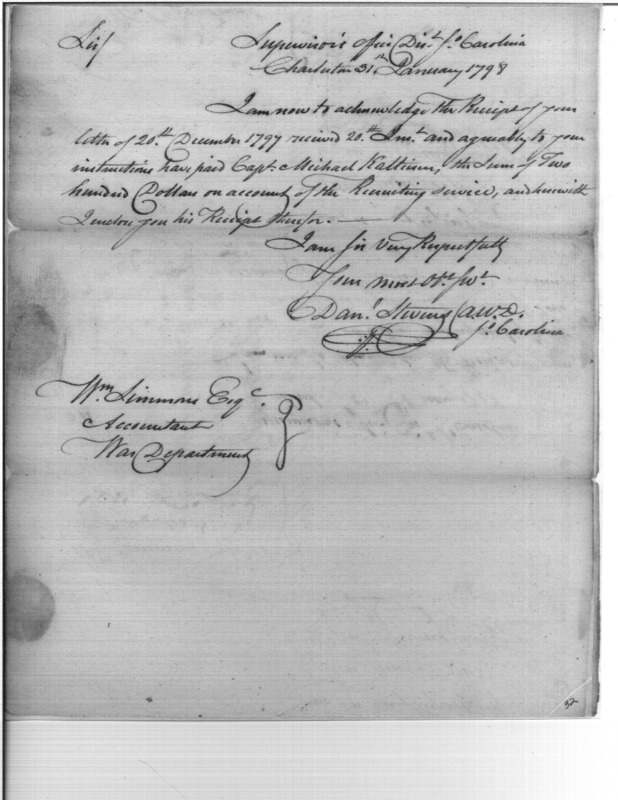 Sir/ Supervisor's office Dist. So. Carolina
Charleston 31st January 1798
I am now to acknowledge the Receipt of your
letter of 20.th December 1797 received 20.th Inst. and agreeably to your
instructions have paid Capt. Michael Kalteisen, the Sum of Two
hundred Dollars on account of the Recruiting service, and herewith
I enclose you his Receipt therefor.
I am Sir Very Respectfully
Your most Ob.t Sv.t
Dan.l Stevens A.W.D.
So. Carolina
Wm Simmons Esq.
Accountant
War Department
32